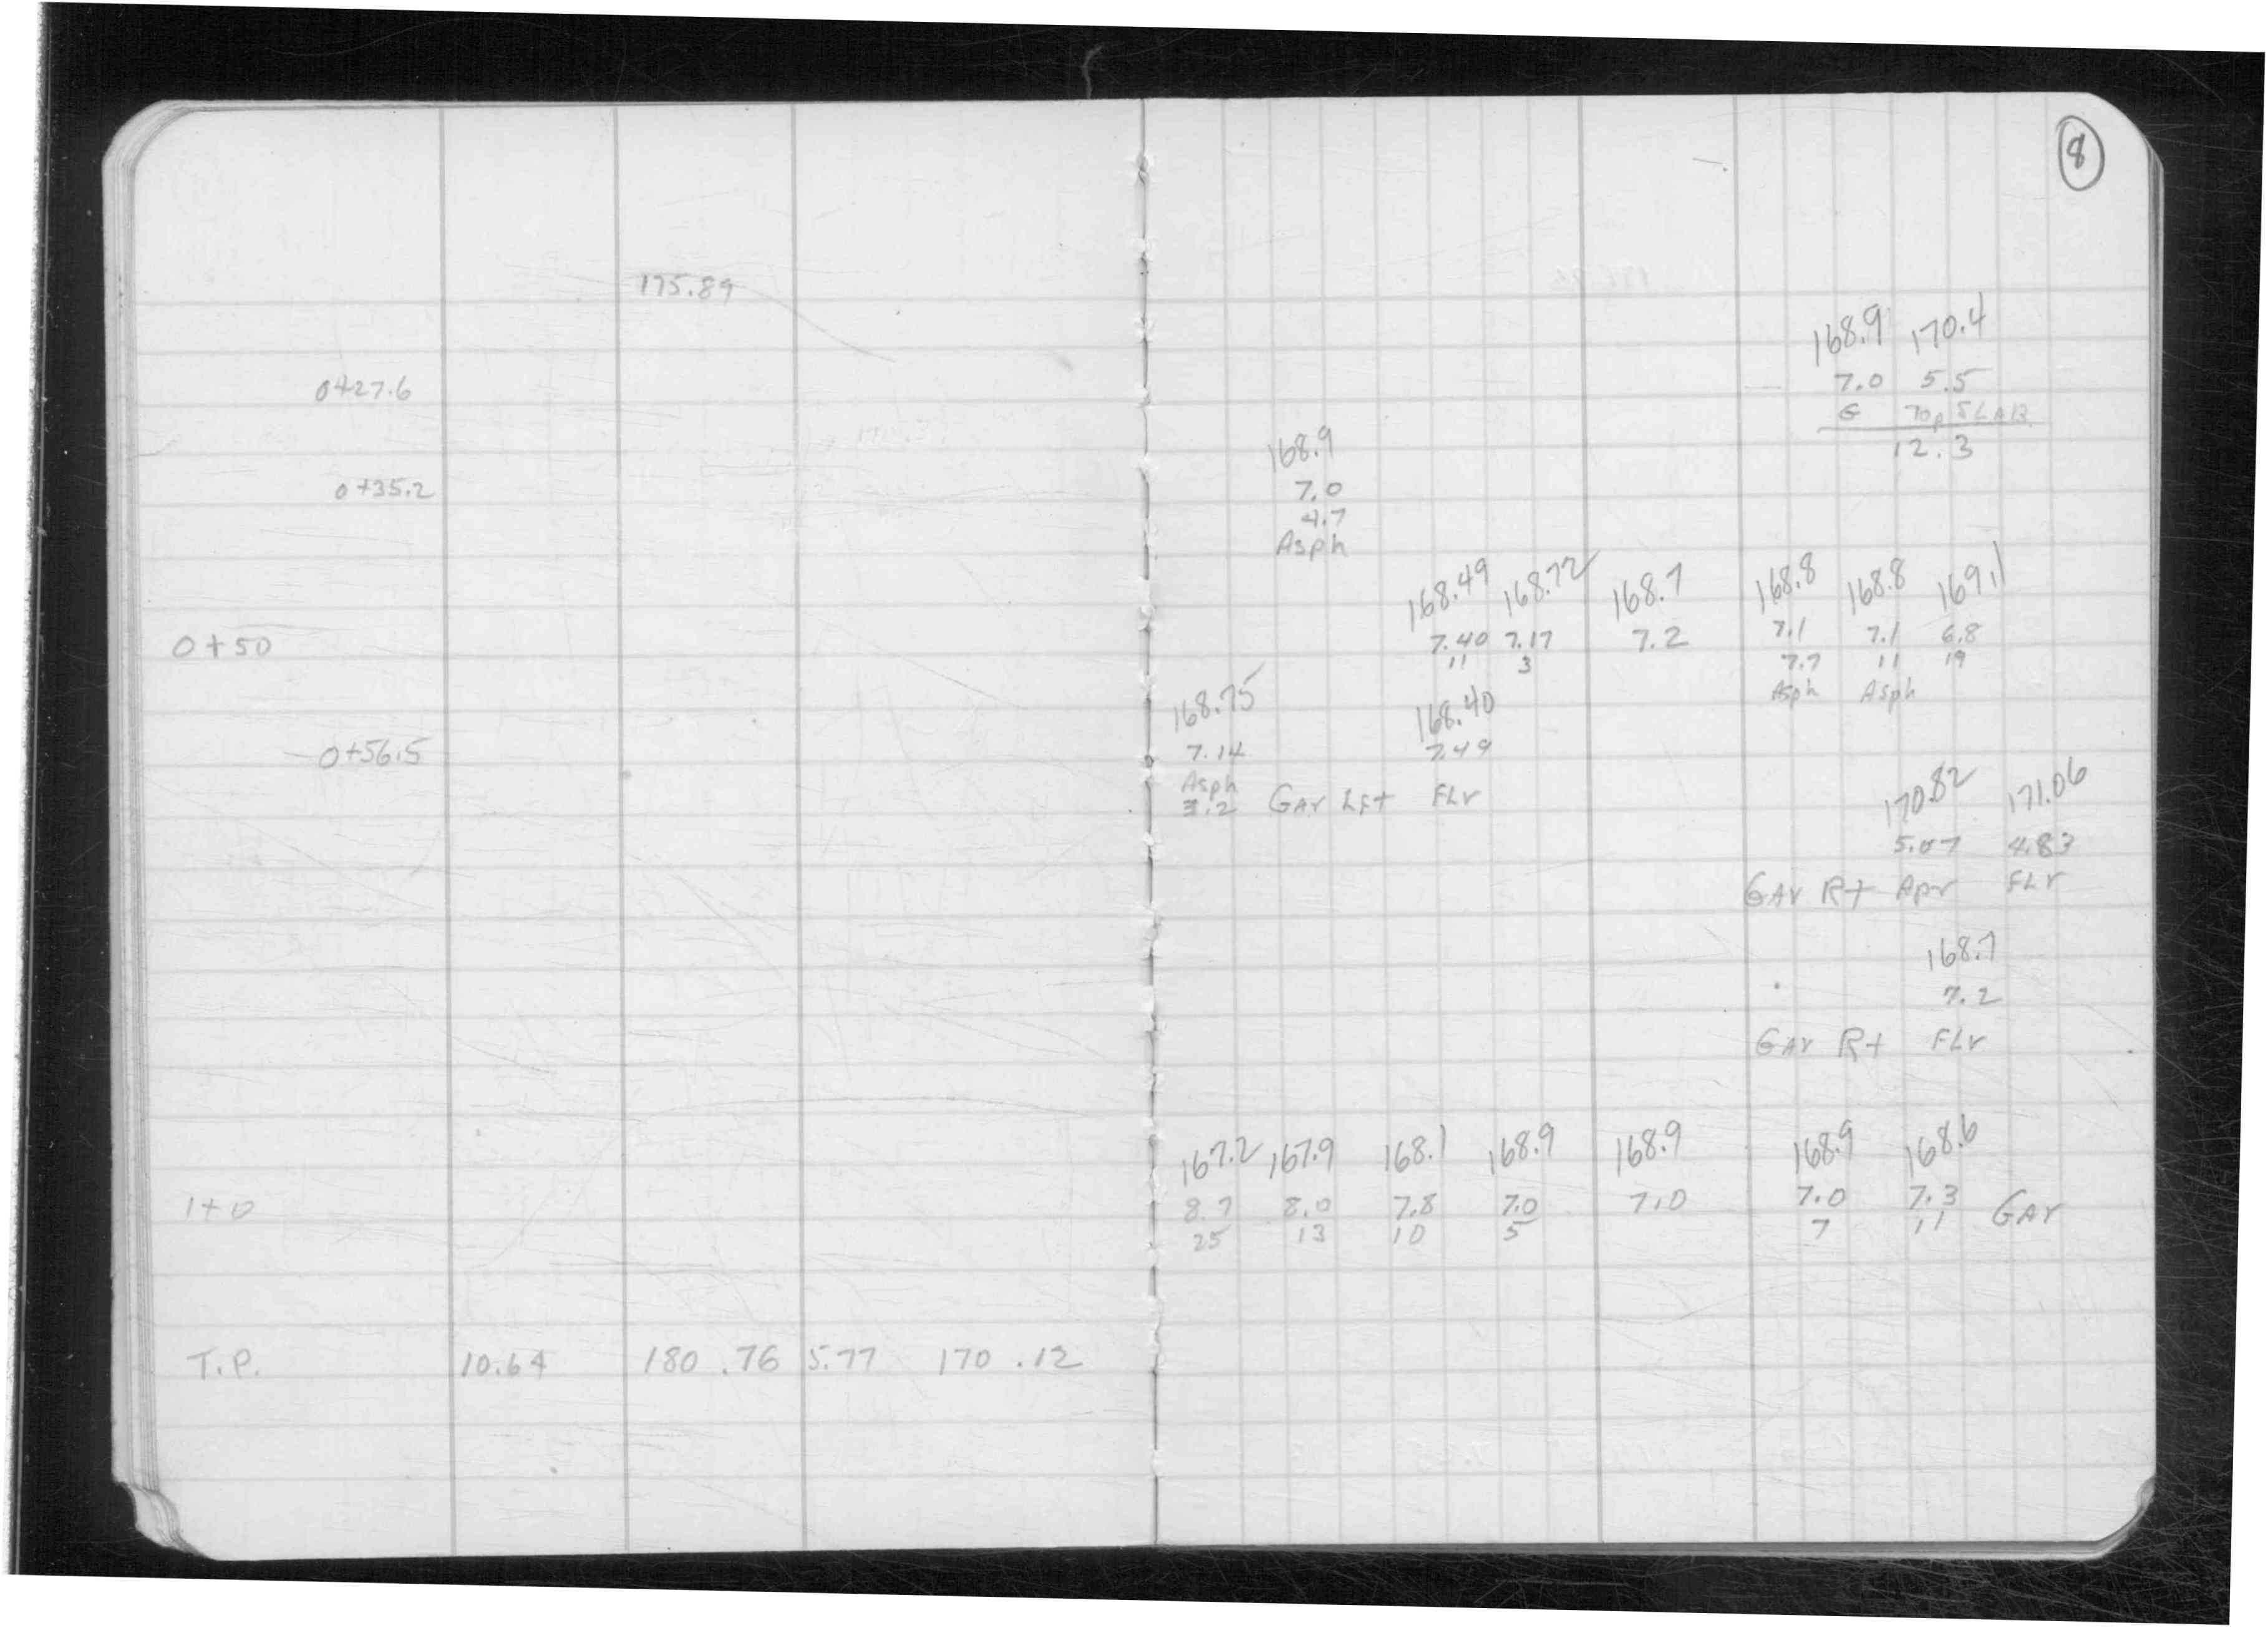 8
175.89
168.9 170.4
0+27.6 7.0 5.5
G Top SLAB
168.9 12.3
0+35.2 7.0
4.7
Asph
168.49 168.72 168.7 168.8 168.8 169.1
0+50 7.40 7.17 7.2 7.1 7.1 6.8
11 3 7.7 11 19
Asph Asph
168.75 168.40
0+56.5 7.14 7.49
Asph
3.2 Gar Lft Flr
170.82 171.06
5.07 4.83
Gar Rt Apr Flr
168.7
7.2
Gar Rt Flr
167.2 167.9 168.1 168.9 168.9 168.9 168.6
1+0 8.7 8.0 7.8 7.0 7.0 7.0 7.3 Gar
25 13 10 5 7 11
T.P. 10.64 180.76 5.77 170.12